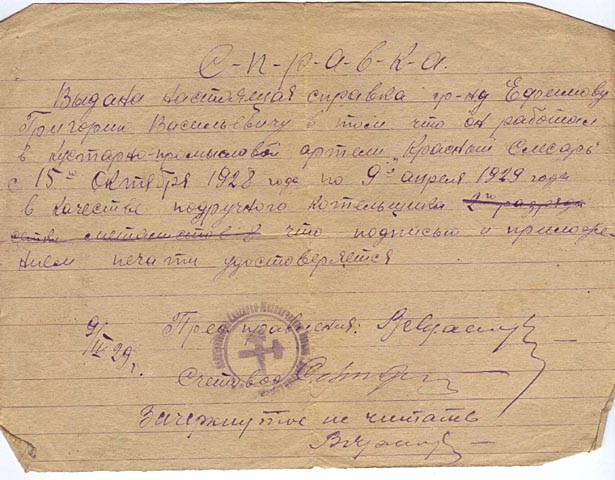 С-п-р-а-в-к-а.
Выдана настоящая справка гр-ну Ефремову
Григорию Васильевичу в том что он работал
в кустарно-промысловой артели "Красный Слесарь"
с 15го Октября 1928 года по 9е апреля 1929 года
в качестве подручного котельщика 2го разряда
что подписью и приложе-
нием печати удостоверяется
9/IV 29г.
Пред. правления:
Счетовод
Зачеркнутое не читать